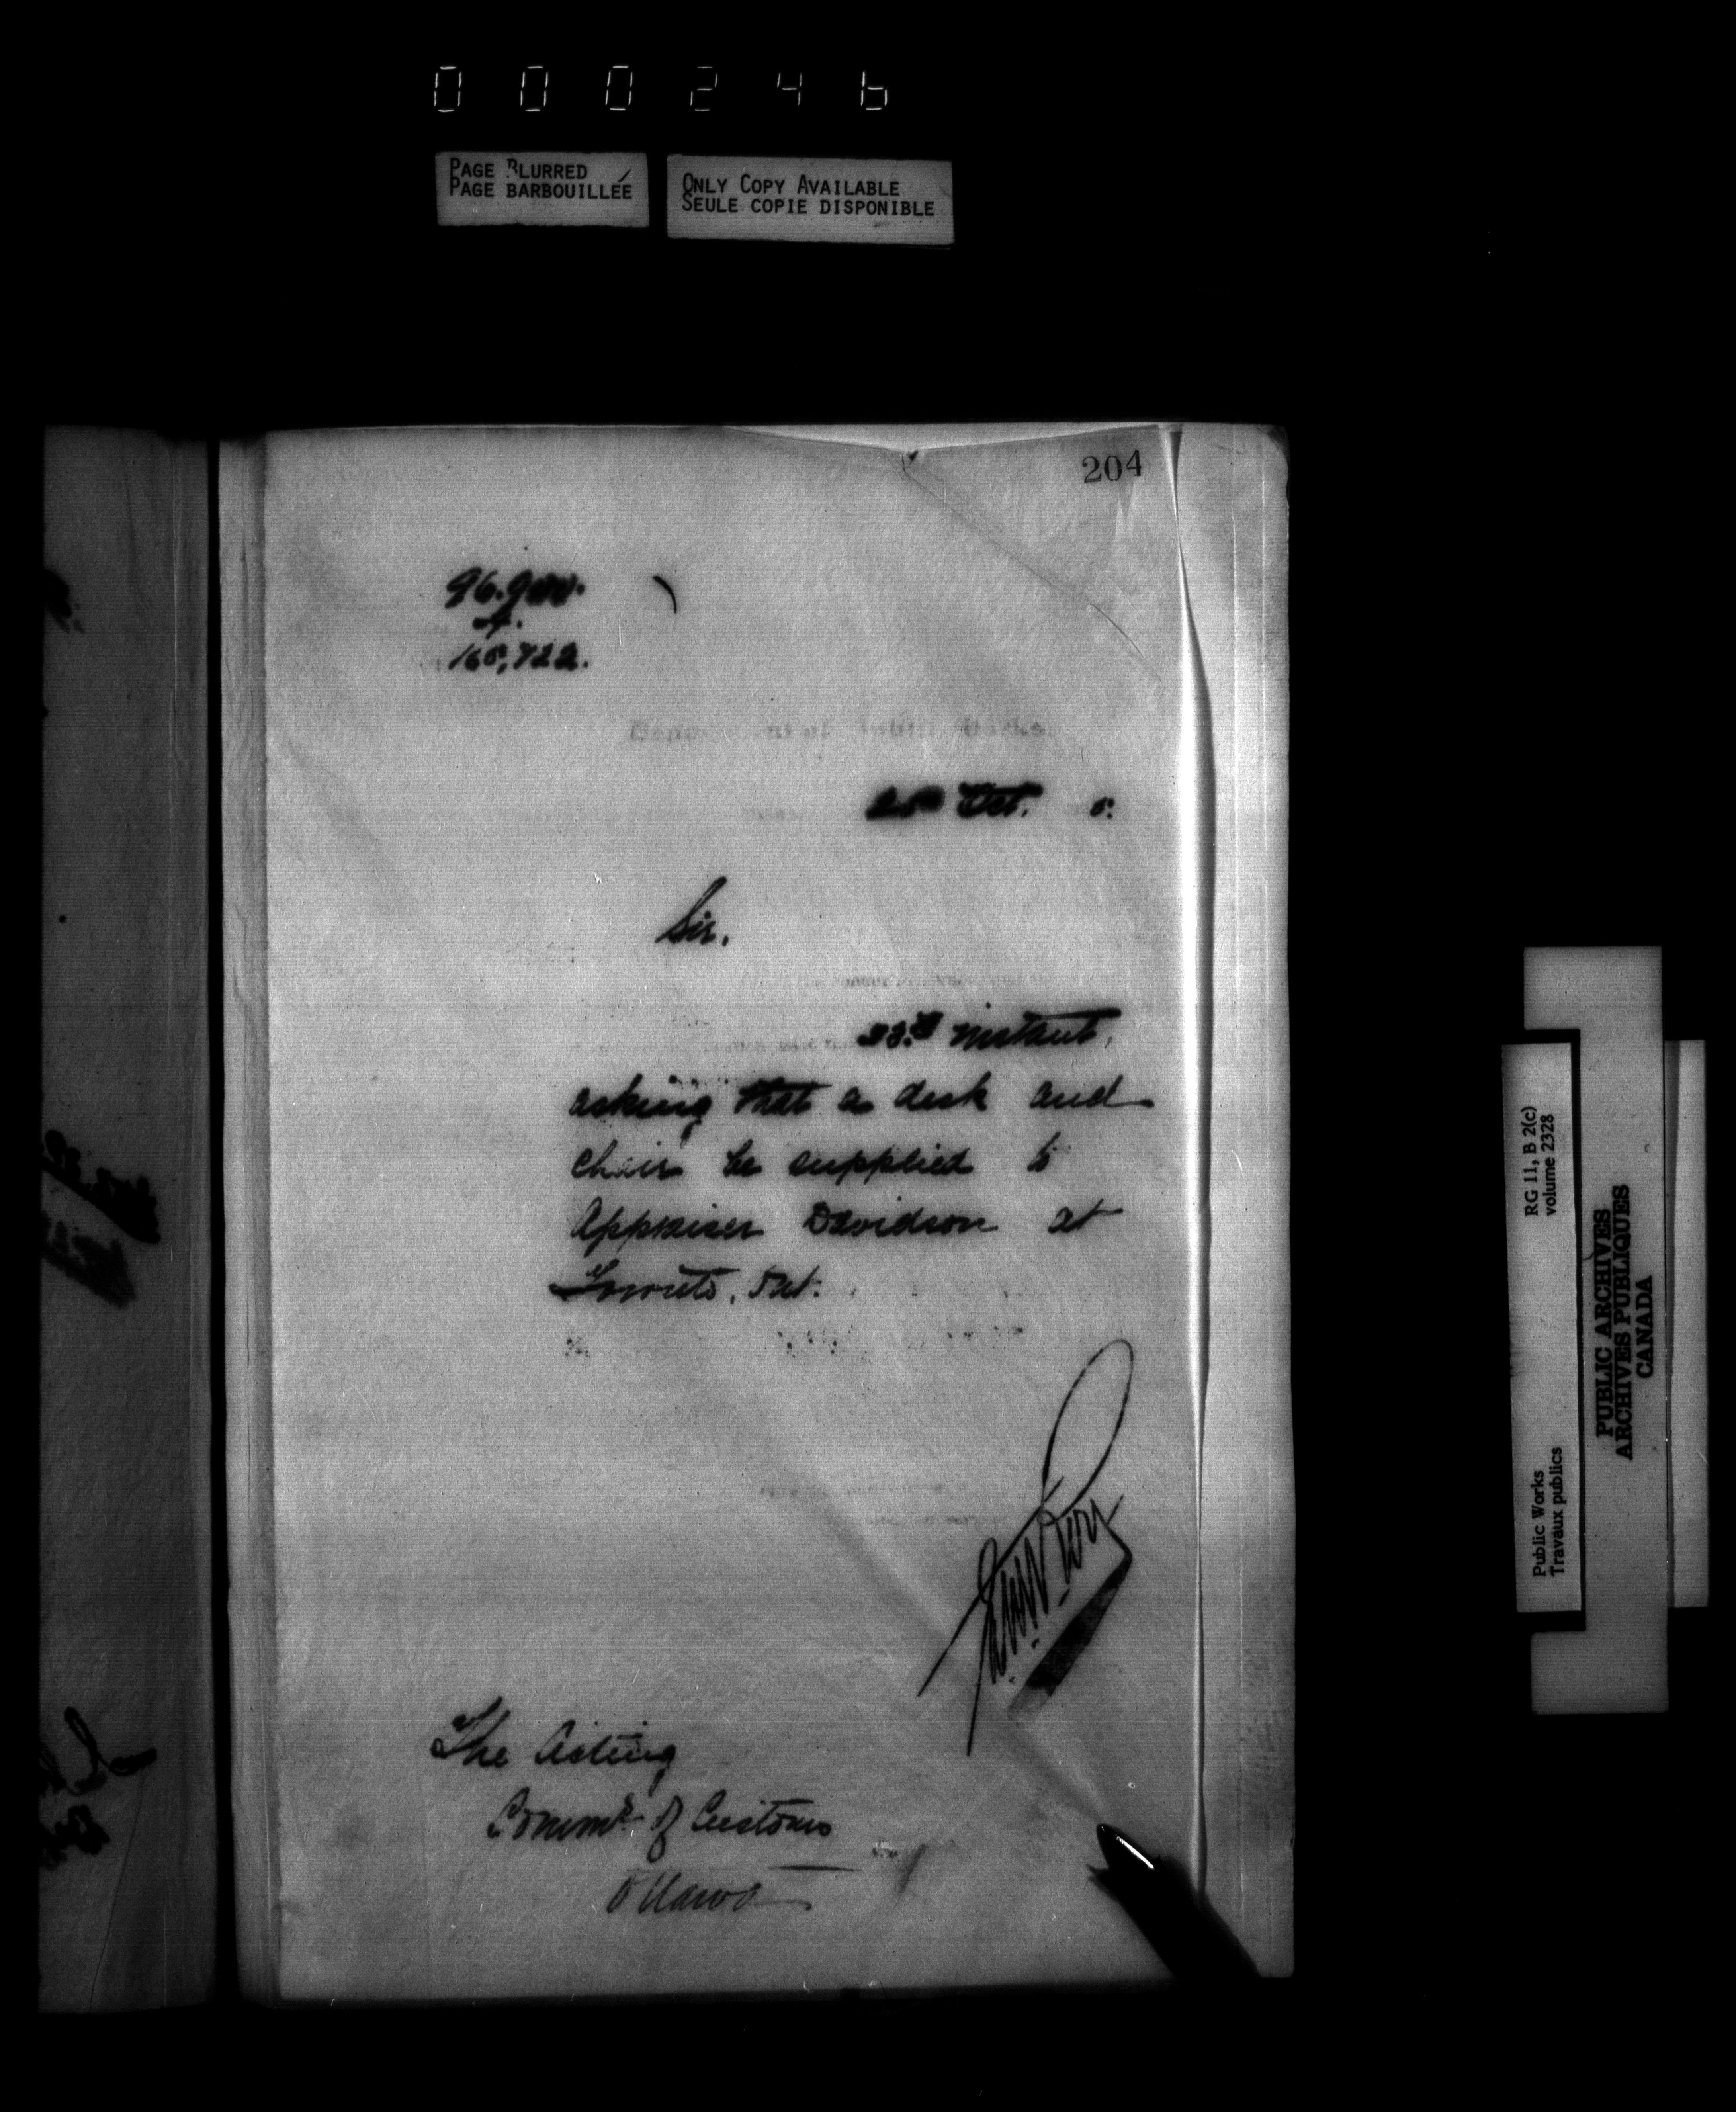 000246
PAGE BLURRED
PAGE BARBOUILLÉE
ONLY COPY AVAILABLE
SEULE COPIE DISPONIBLE
204
165,722.
Oct. 5.
Sir.
23rd instant,
asking that a desk and
chair be supplied to
Appraiser Davidson at
Toronto, Ont.
The Acting
Commr. of Customs
Ottawa
RG 11, B 2(c)
volume 2328
Public Works
Travaux publics
PUBLIC ARCHIVES
ARCHIVES PUBLIQUES
CANADA